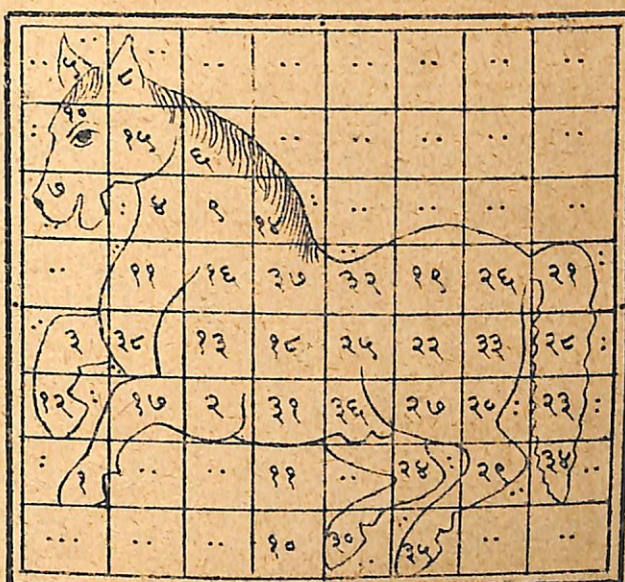 ५ ८
१० १५ ६
७ ४ ९ १४
११ १६ ३७ ३२ १९ २६ २१
३ ३८ १३ १८ २५ २२ ३३ २८
१२ १७ २ ३१ ३६ २७ २० २३
१ ११ २४ २९ ३४
१० ३० ३५